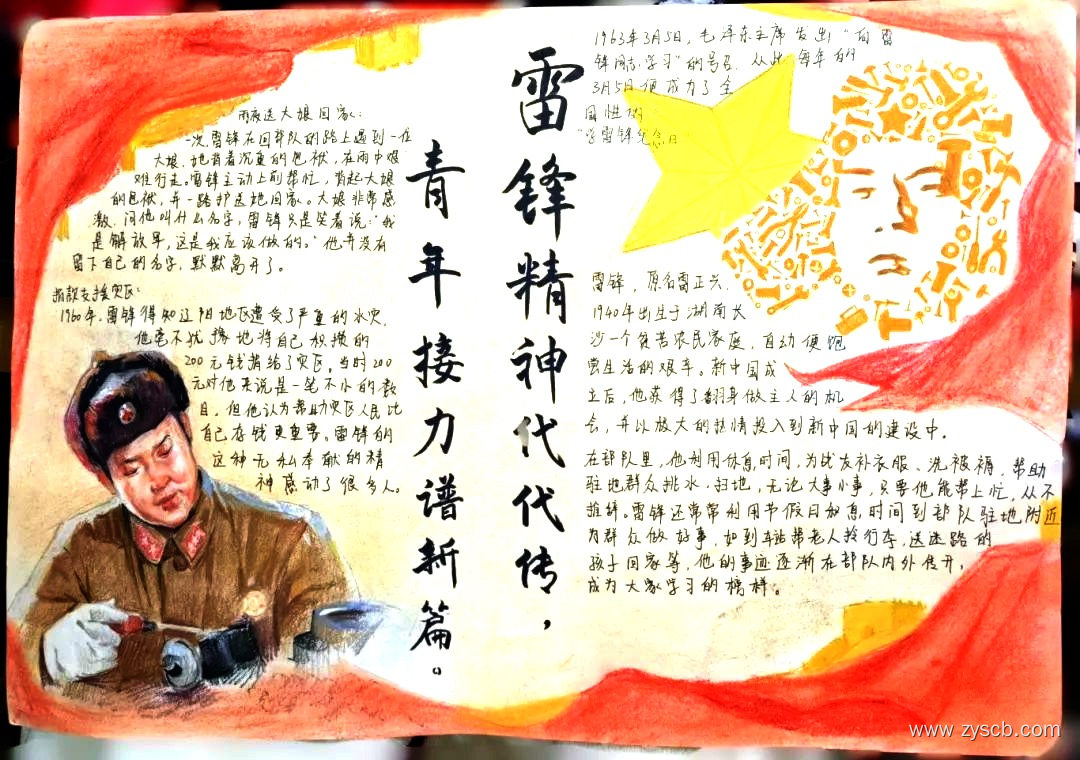 雷锋精神代代传，
青年接力谱新篇。
雨夜送大娘回家：
一次，雷锋在回部队的路上遇到一位
大娘，她背着沉重的包袱，在雨中艰
难行走。雷锋主动上前帮忙，背起大娘
的包袱，并一路护送她回家。大娘非常感
激，问他叫什么名字，雷锋只是笑着说："我
是解放军，这是我应该做的。"他并没有
留下自己的名字，默默离开了。
捐款支援灾区：
1960年，雷锋得知辽阳地区遭受了严重的水灾，
他毫不犹豫地将自己积攒的
200元钱捐给了灾区。当时200
元对他来说是一笔不小的数
目，但他认为帮助灾区人民比
自己存钱更重要。雷锋的
这种无私奉献的精
神感动了很多人。
1963年3月5日，毛泽东主席发出"向雷
锋同志学习"的号召，从此，每年的
3月5日便成为了全
国性的
"学雷锋纪念日"
雷锋，原名雷正兴，
1940年出生于湖南长
沙一个贫苦农民家庭，自幼便饱
尝生活的艰辛。新中国成
立后，他获得了翻身做主人的机
会，并以放大的热情投入到新中国的建设中。
在部队里，他利用休息时间，为战友补衣服、洗被褥，帮助
驻地群众挑水、扫地，无论大事小事，只要他能帮上忙，从不
推辞。雷锋还常常利用节假日休息时间到部队驻地附近
为群众做好事，如到车站帮老人拎行李，送迷路的
孩子回家等，他的事迹逐渐在部队内外传开，
成为大家学习的榜样。
www.zyscb.com